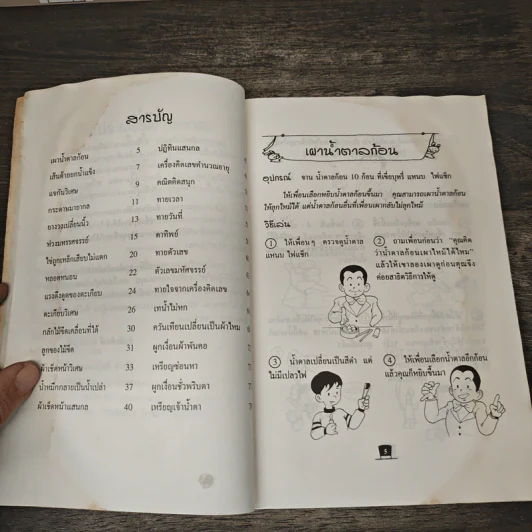 สารบัญ
เผาน้ำตาลก้อน 5 ปฏิทินแสนกล
เส้นด้ายยกน้ำแข็ง 7 เครื่องคิดเลขคำนวณอายุ
แจกันวิเศษ 9 คณิตคิดสนุก
กระดาษมายากล 11 ทายเวลา
ยางวงเปลี่ยนนิ้ว 13 ทายวันที่
ห่วงมหรรศจรรย์ 15 ตาทิพย์
ใช้ถูกเหล็กเสียบไม่แตก 20 ทายตัวเลข
หลอดหนอน 22 ตัวเลขมหัศจรรย์
แรงดึงดูดของตะเกียบ 24 ทายใจจากเครื่องคิดเลข
ตะเกียบวิเศษ 26 เทน้ำไม่หก
กลักไม้ขีดเคลื่อนที่ได้ 30 ควันเทียนเปลี่ยนเป็นผ้าไหม
ลูกของไม้ขีด 31 ผูกเงื่อนผ้าพันคอ
ผ้าเช็ดหน้าวิเศษ 33 เหรียญซ่อนหา
น้ำหมึกกลายเป็นน้ำเปล่า 37 ผูกเงื่อนชั่วพริบตา
ผ้าเช็ดหน้าแสนกล 40 เหรียญเจ้าน้ำตา
เผาน้ำตาลก้อน
อุปกรณ์ จาน น้ำตาลก้อน 10 ก้อน ที่เขี่ยบุหรี่ แหนบ ไฟแช็ก
ให้เพื่อนเลือกหยิบน้ำตาลก้อนขึ้นมา คุณสามารถเผาน้ำตาลก้อน
ให้ลุกไหม้ได้ แต่น้ำตาลก้อนอื่นที่เพื่อนเผากลับไม่ลุกไหม้
วิธีเล่น
1 ให้เพื่อนๆ ตรวจดูน้ำตาล
แหนบ ไฟแช็ก
2 ถามเพื่อนก่อนว่า "คุณคิด
ว่าน้ำตาลก้อนเผาไหม้ได้ไหม"
แล้วให้เขาลองเผาดูก่อนคุณจึง
ค่อยสาธิตวิธีการให้ดู
3 น้ำตาลเปลี่ยนเป็นสีดำ แต่
ไม่มีเปลวไฟ
4 ให้เพื่อนเลือกน้ำตาลอีกก้อน
แล้วคุณก็หยิบขึ้นมา
5